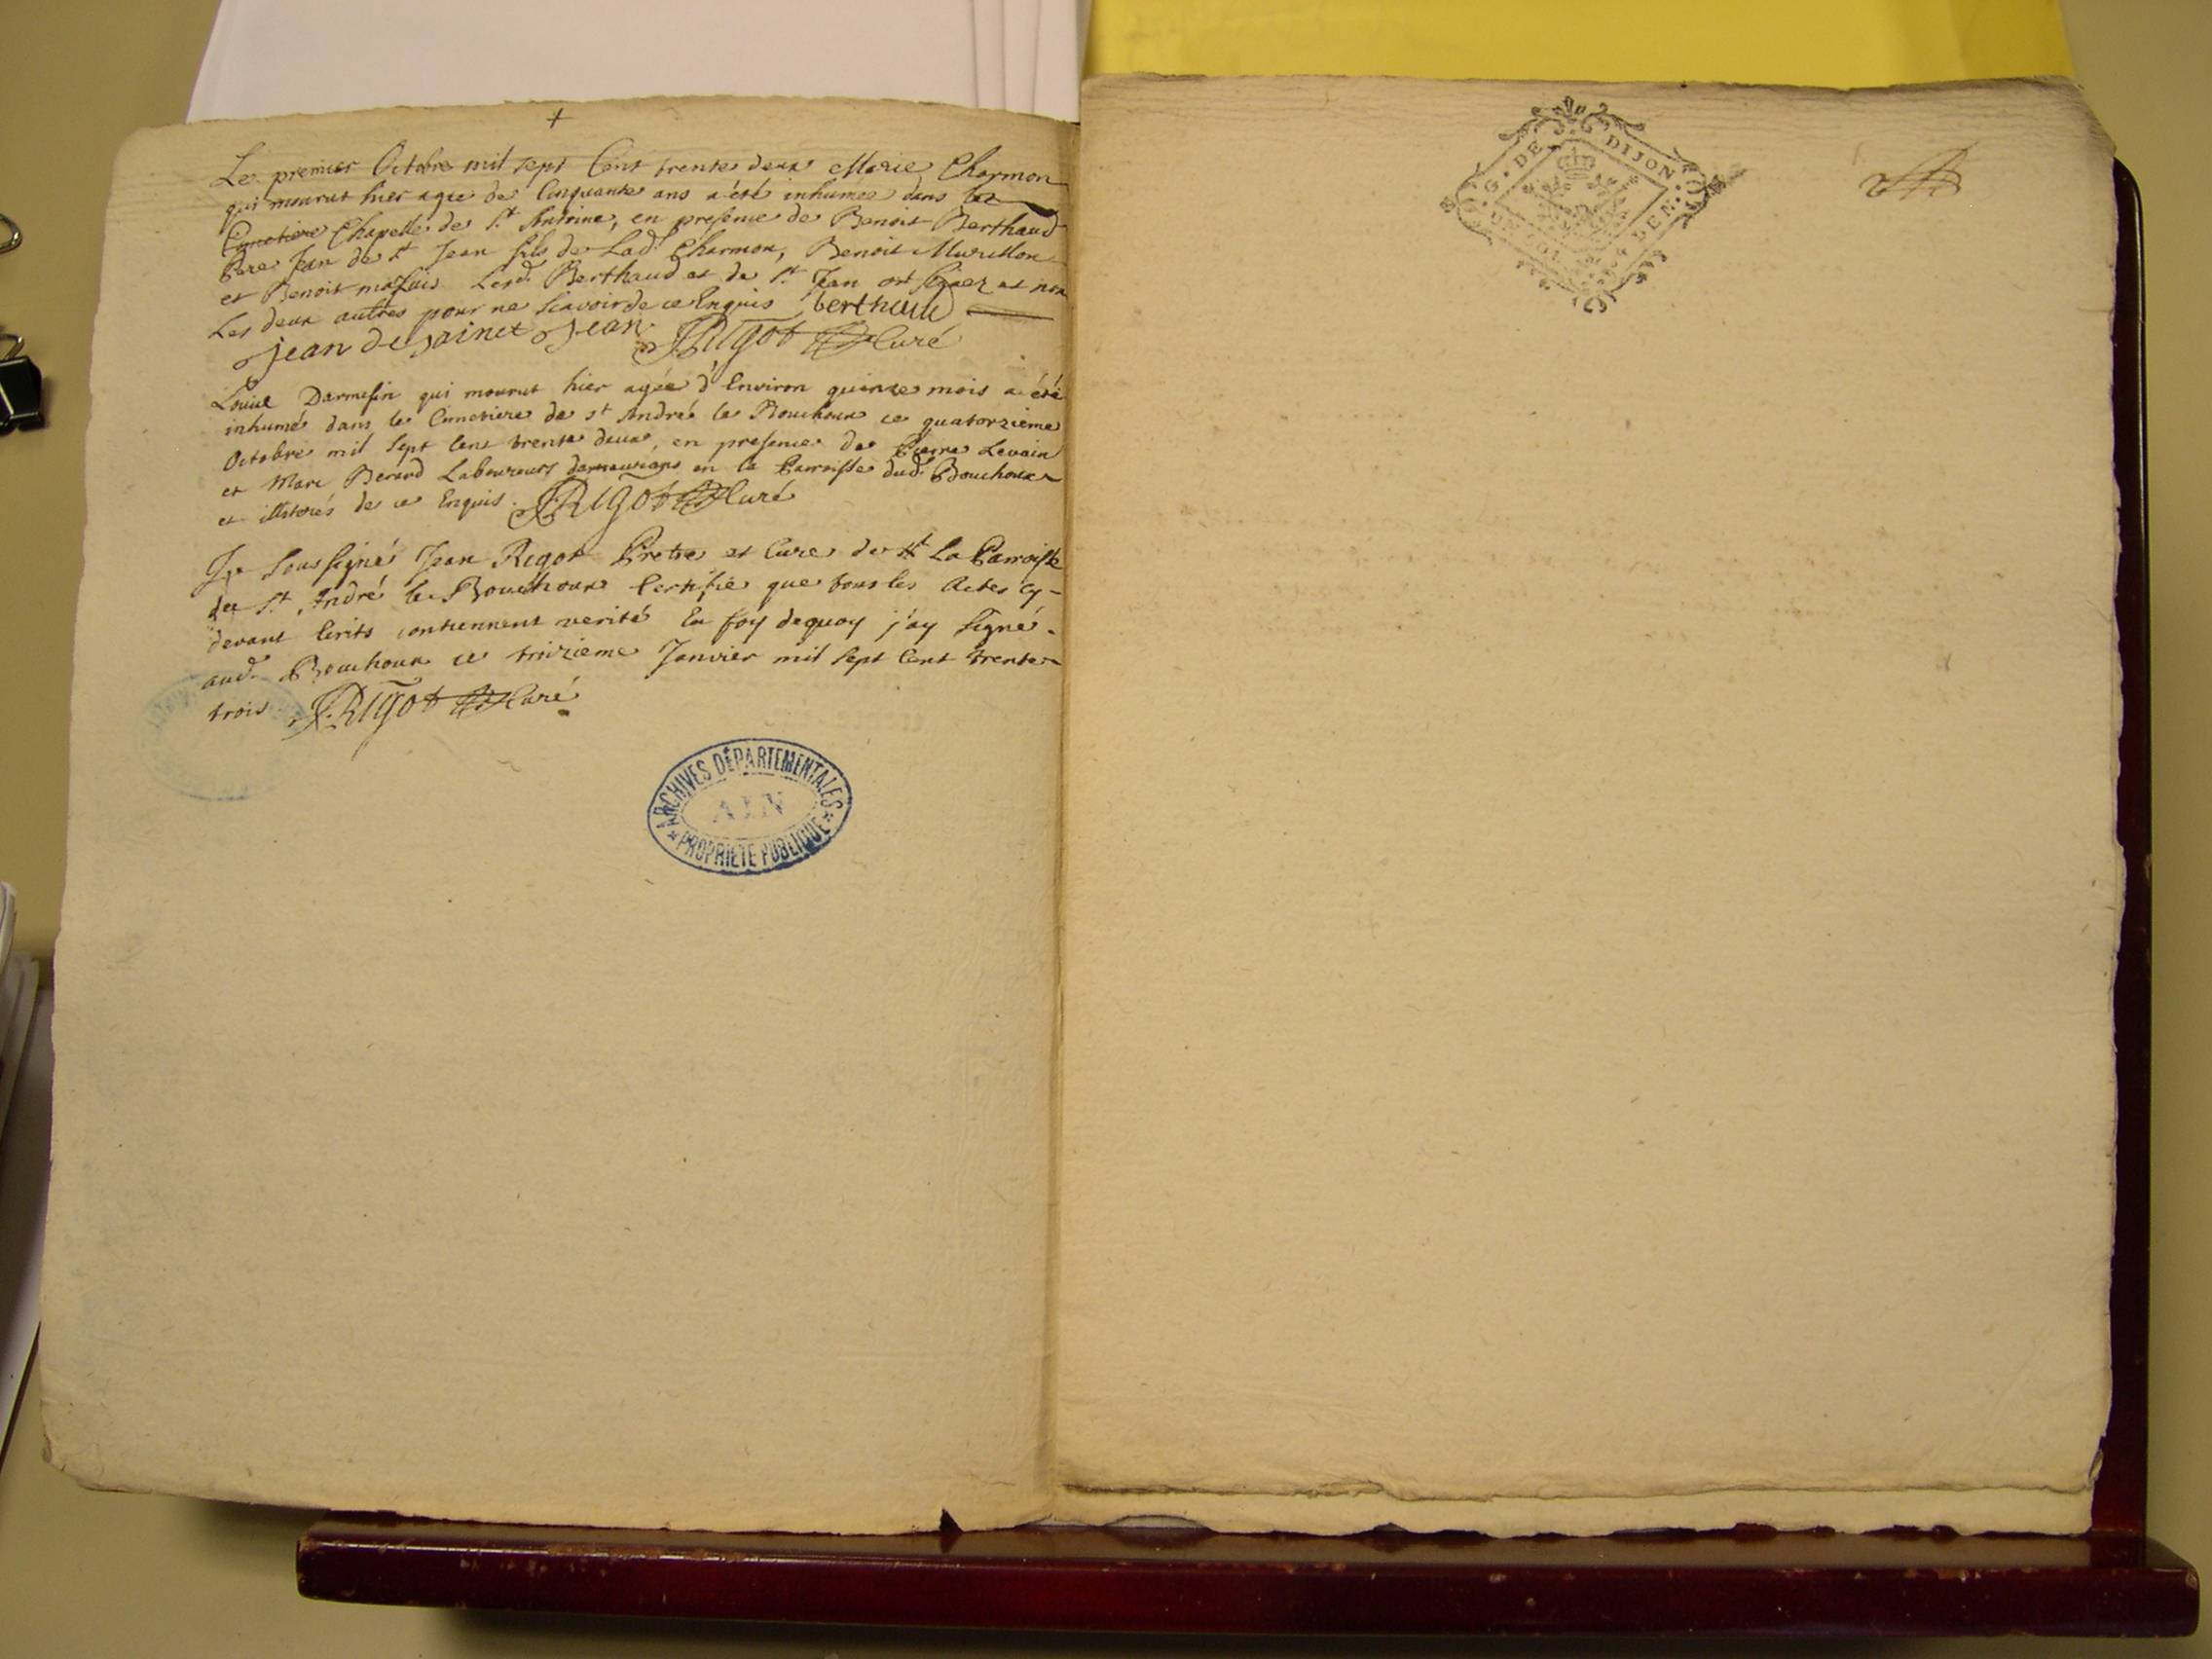 +
Le premier Octobre mil sept Cent trente deux Marie Charmon
qui mourut hier agee de Cinquante ans a été inhumée dans
Cimetiere Chapelle de St Antoine, en presence de Benoit Berthaud
Pere Jean de St Jean fils de Lad. Charmon, Benoit Murillon
et Benoit Lesd. Berthaud et de St Jean ont signez et non
Les deux autres pour ne sçavoir de ce Enquis berthaud
jean de sainct jean JRigot Curé
Darmesin qui mourut hier agée d'Environ quinze mois a été
inhumé dans le Cimetiere de st André le Bouchoux ce quatorzieme
Octobre mil sept Cent trente deux, en presence de Pierre Levrain
et Marc Berard Laboureurs en la Parroisse dud. Bouchoux
et illiterés de ce Enquis. JRigot Curé
Je soussigné Jean Rigot Pretre et Curé de La Parroisse
de St André le Bouchoux Certifie que tous les Actes cy-
devant Ecrits contiennent verité En foy dequoy j'ay signé.
aud. Bouchoux ce troizieme Janvier mil sept Cent trente
trois JRigot Curé
ARCHIVES DÉPARTEMENTALES
AIN
* PROPRIETE PUBLIQUE *
G. DE DIJON
DEN.